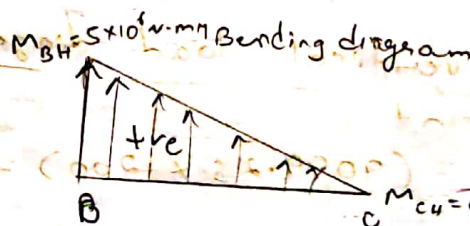 M_BH = 5×10⁶ N-mm Bending diagram
+ve
B
C M_CH =